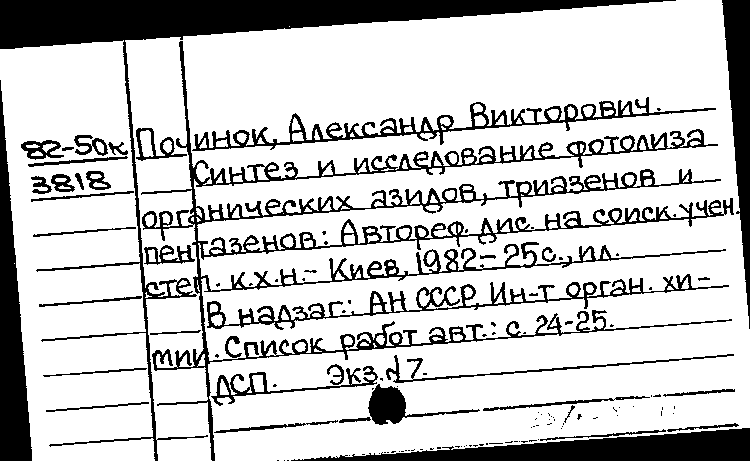 82-50к Починок, Александр Викторович.
3818 Синтез и исследование фотолиза
органических азидов, триазенов и
пентазенов: Автореф. дис. на соиск. учен.
степ. к.х.н.- Киев, 1982.- 25с., ил.
В надзаг.: АН СССР, Ин-т орган. хи-
мии. Список работ авт.: с. 24-25.
ДСП. Экз. №7.